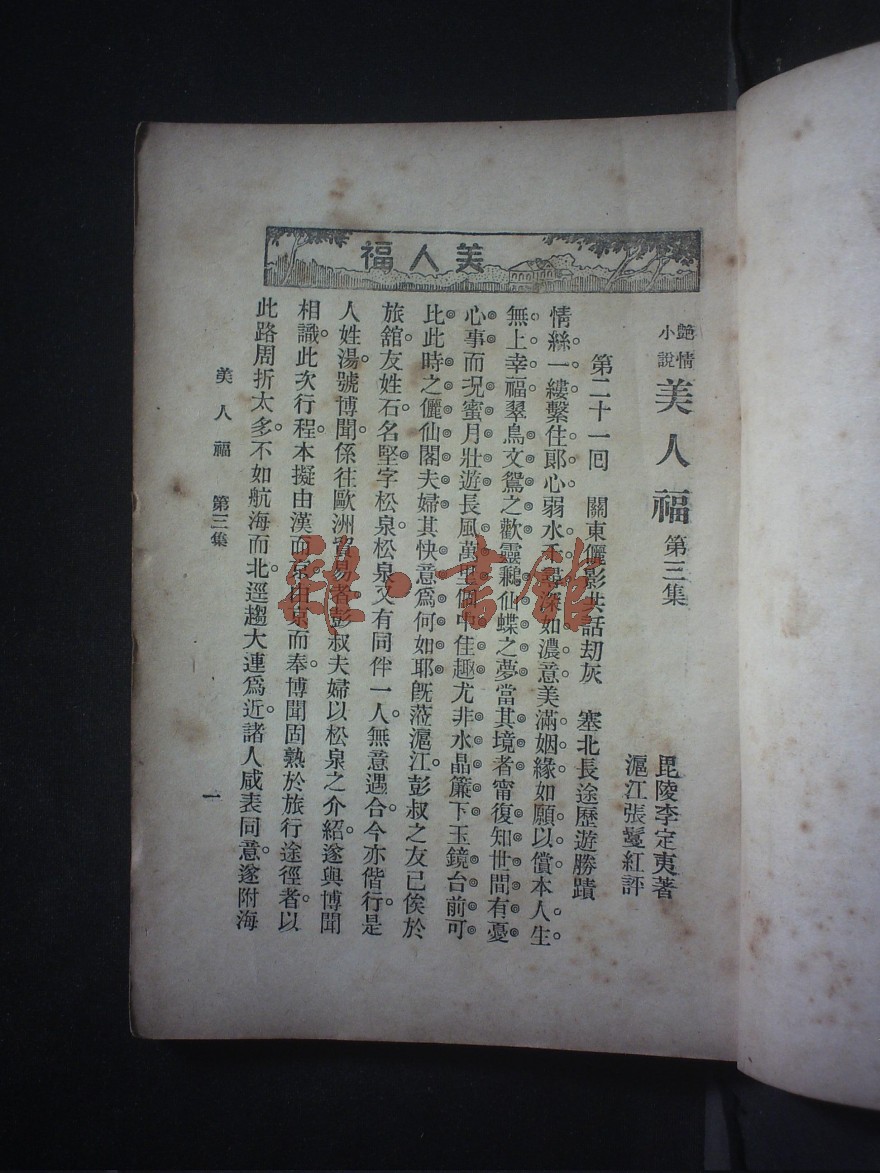 美人福
艷情
小說
美人福第三集
毘陵李定夷著
滬江張鸞紅評
第二十一回　關東儷影共話刧灰　塞北長途歷遊勝蹟
情絲一縷繫住郎心弱水千尋深如濃意美滿姻緣如願以償本人生
無上幸福翠鳥文鴛之歡靈鶼仙蝶之夢當其境者甯復知世間有憂
心事而况蜜月壯遊長風萬里個中佳趣尤非水晶簾下玉鏡台前可
比此時之儷仙閣夫婦其快意爲何如耶旣蒞滬江彭叔之友已俟於
旅舘友姓石名堅字松泉松泉又有同伴一人無意遇合今亦偕行是
人姓湯號博聞係往歐洲貿易者彭叔夫婦以松泉之介紹遂與博聞
相識此次行程本擬由漢而京由京而奉博聞固熟於旅行途徑者以
此路周折太多不如航海而北逕趨大連爲近諸人咸表同意遂附海
美人福　第三集
一
雜·書館